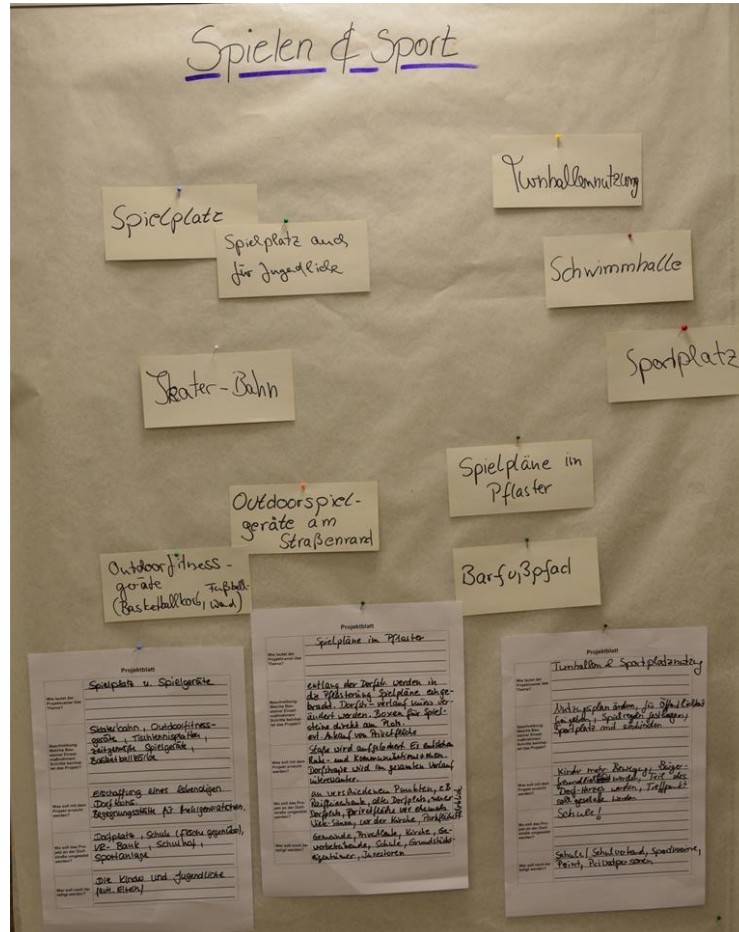 Spielen & Sport
Turnhallennutzung
Spielplatz
Spielplatz auch
für Jugendliche
Schwimmhalle
Sportplatz
Skater-Bahn
Spielpläne im
Pflaster
Outdoorspiel-
geräte am
Straßenrand
Outdoorfitness-
geräte Fußball-
(Basketballkorb, Wand)
Barfußpfad
Projektblatt
Wie lautet der
Projektname/ das
Thema?
Spielplatz u. Spielgeräte
Skaterbahn, Outdoorfitness-
geräte, Tischtennisplatten,
zeitgemäße Spielgeräte,
Basketballkörbe
Erschaffung eines lebendigen
Dorfkerns
Begegnungsstätte für
Dorfplatz, Schule (Fläche gegenüber),
VR-Bank, Schulhof,
Sportanlage
Die Kinder und Jugendliche
Projektblatt
Wie lautet der
Projektname/ das
Thema?
Spielpläne im Pflaster
entlang der Dorfstr. werden in
die Pflasterung Spielpläne einge-
bracht. Dorfstr.-verlauf muss ver-
ändert werden. Boxen für Spiel-
steine direkt am Platz.
evt. Ankauf von Privatfläche
wird aufgelockert. Es entstehen
Ruhe- und Kommunikations
wird im gesamten Verlauf
interessanter.
an verschiedenen Punkten, z.B.
Raiffeisenbank, alter Dorfplatz, neuer
Dorfplatz, Privatfläche vor ehemals
vor der Kirche, Parkfläche
Gemeinde, Privatleute, Kirche, Ge-
werbetreibende, Schule, Grundstücks-
eigentümer, Investoren
Projektblatt
Wie lautet der
Projektname/ das
Thema?
Turnhallen & Sportplatznutzung
Nutzungsplan ändern, für Öffentlichkeit
freigeben, Spielregeln festlegen,
Sportplatz mit einbinden
Kinder mehr Bewegung, Bürger-
freundlicher werden, Teil des
Dorf-Herzens werden, Treffpunkt
soll geschaffen werden
Schule!
Schule/Schulverband, Sportvereine,
Privatpersonen